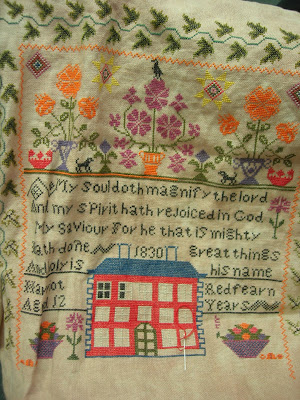 My Soul doth magnify the lord
And my Spirit hath rejoiced in God
My Saviour for he that is mighty
hath done 1830 great things
And holy is his name
Redfearn
Aged 12 Years